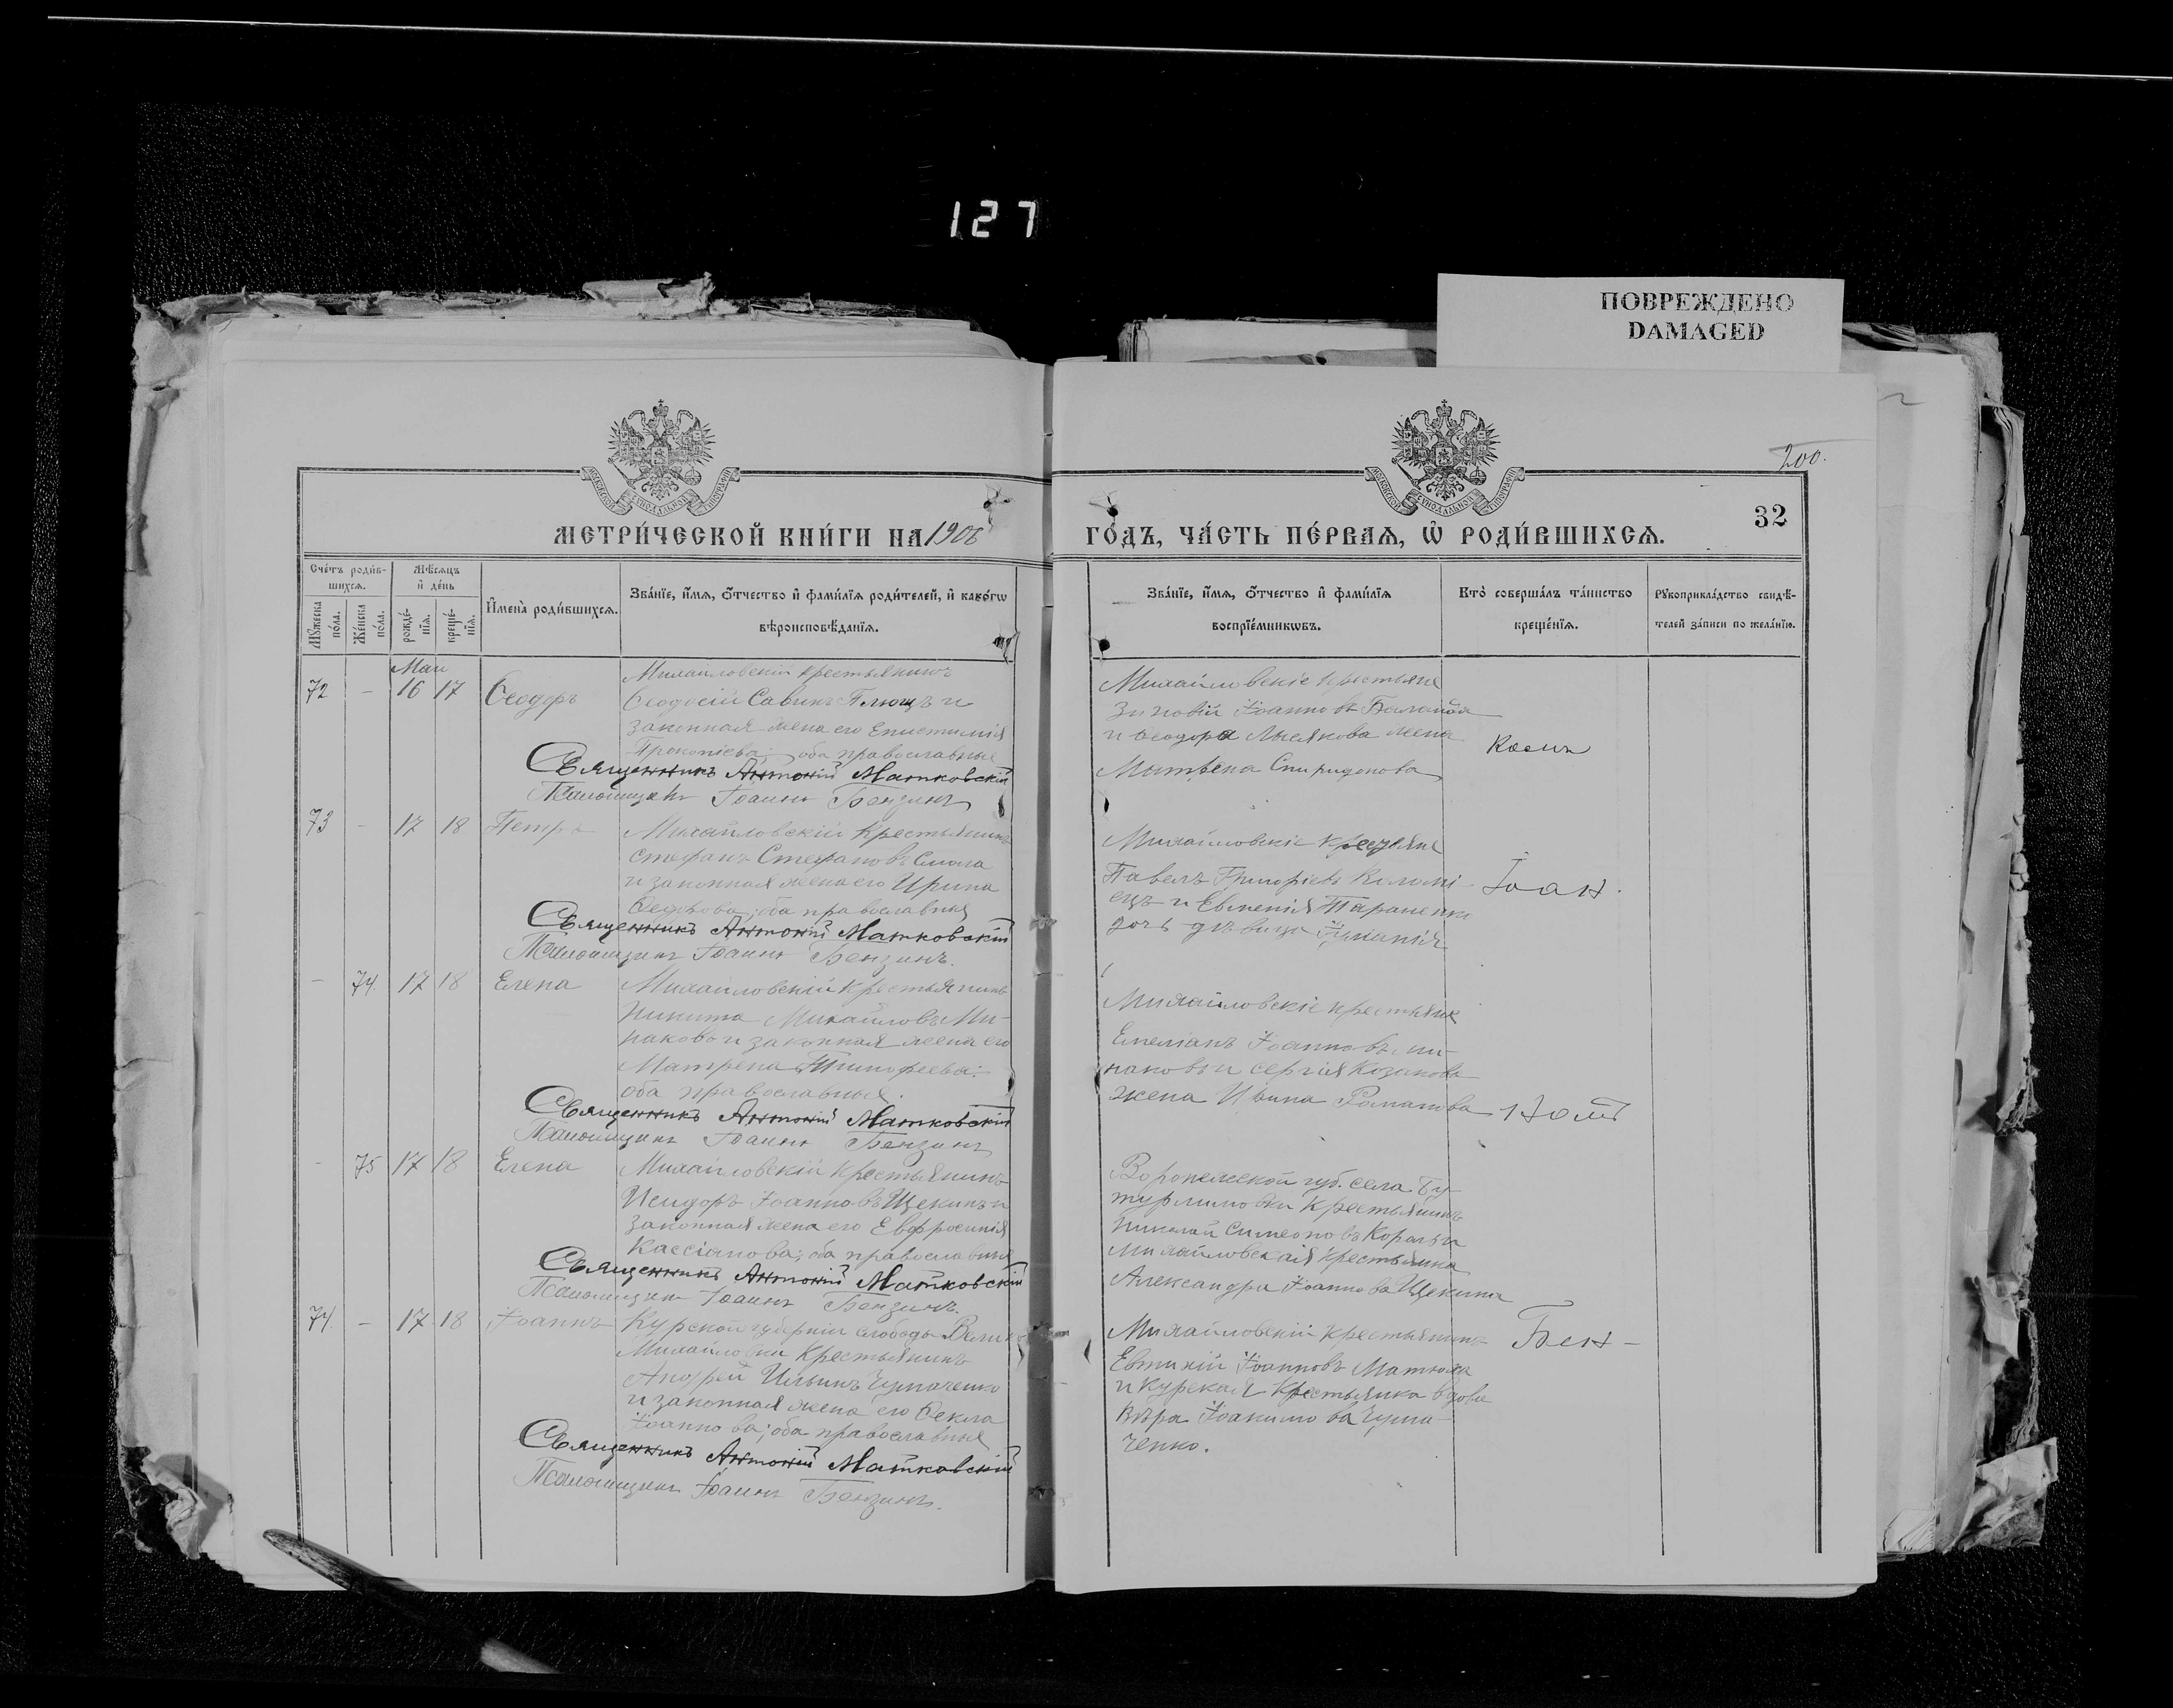 127
ПОВРЕЖДЕНО
DAMAGED
200.
32
МОСКОВСКОЙ СѴНОДАЛЬНОЙ ТИПОГРАФІИ
МОСКОВСКОЙ СѴНОДАЛЬНОЙ ТИПОГРАФІИ
МЕТРИ́ЧЕСКОЙ КНИ́ГИ НА 1906
ГО́ДЪ, ЧА́СТЬ ПЕ́РВАѦ, Ѡ҆ РОДИ́ВШИХСѦ.
Сче́тъ роди́в-
шихсѧ.
Мꙋ́жеска по́ла.
Же́нска по́ла.
Мѣ́сѧцъ
и҆ де́нь
рожде́-
нїѧ.
креще́-
нїѧ.
И҆мена̀ роди́вшихсѧ.
Зва́нїе, и҆́мѧ, ѻ҆́тчество и҆ фами́лїѧ роди́телей, и҆ како́гѡ
вѣроисповѣ́данїѧ.
Зва́нїе, и҆́мѧ, ѻ҆́тчество и҆ фами́лїѧ
воспрїе́мникѡвъ.
Кто̀ соверша́лъ та́инство
креще́нїѧ.
Рꙋкоприкла́дство свидѣ́-
телей за́писи по жела́нїю.
Маи
72 - 16 17 Ѳеодоръ
Михайловскій крестьянинъ
Ѳеодосій Савинъ Плющъ и
законная жена его Епистимія
Прокопіева; оба православные
Священникъ Антоній Матковскій
Псаломщикъ Іоаннъ Бензинъ
Михайловскіе крестьяне
Зиновій Іоанновъ Баланда
и Ѳеодора Лысякова жена
Матрена Спиридонова
73 - 17 18 Петръ
Михайловскій крестьянинъ
Стефанъ Стефановъ Смола
и законная жена его Ирина
оба православные
Священникъ Антоній Матковскій
Псаломщикъ Іоаннъ Бензинъ.
Михайловскіе крестьяне
Павелъ Григоріевъ Коломі-
ецъ и Евгенія Тараненки
дочь дѣвица
Іоан
- 74. 17 18 Елена
Михайловскій крестьянинъ
Никита Михайловъ Ми-
наковъ и законная жена его
Матрена Тимофеева;
оба православные.
Священникъ Антоній Матковскій
Псаломщикъ Іоаннъ Бензинъ
Михайловскіе крестьяне
Емеліанъ Іоанновъ Ми-
наковъ и Сергія Козакова
жена Ирина Романова
- 75 17 18 Елена
Михайловскій крестьянинъ
Исидоръ Іоанновъ Щекинъ и
законная жена его Евфросинія
Кассіанова; оба православные
Священникъ Антоній Матковскій
Псаломщикъ Іоаннъ Бензинъ.
Воронежской губ. села Бу-
турлиновки крестьянинъ
Николай Симеоновъ Король и
Михайловская крестьянка
Александра Іоаннова Щекина
74. - 17 18 Іоаннъ
Курской губерніи слободы Велико
Михайловки крестьянинъ
Андрей Ильинъ Чумаченко
и законная жена его Ѳекла
Іоаннова; оба православные
Священникъ Антоній Матковскій
Псаломщикъ Іоаннъ Бензинъ.
Михайловскій крестьянинъ
Евтихій Іоанновъ Матюха
и Курская крестьянка вдова
Вѣра Іоакимова Чума-
ченко.
Бен-